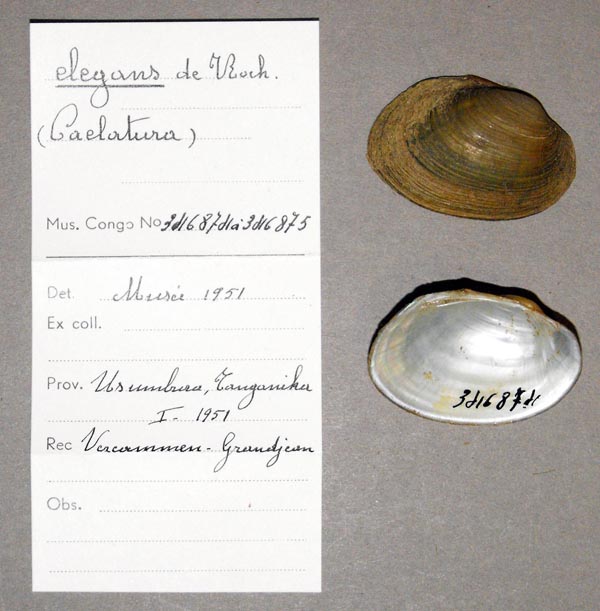 elegans de Roch.
(Caelatura)
Mus. Congo No 32168721 à 3216875
Det. Musée 1951
Ex coll.
Prov. Usumbura, Tanganika
I - 1951
Rec Vercammen - Grandjean
Obs.